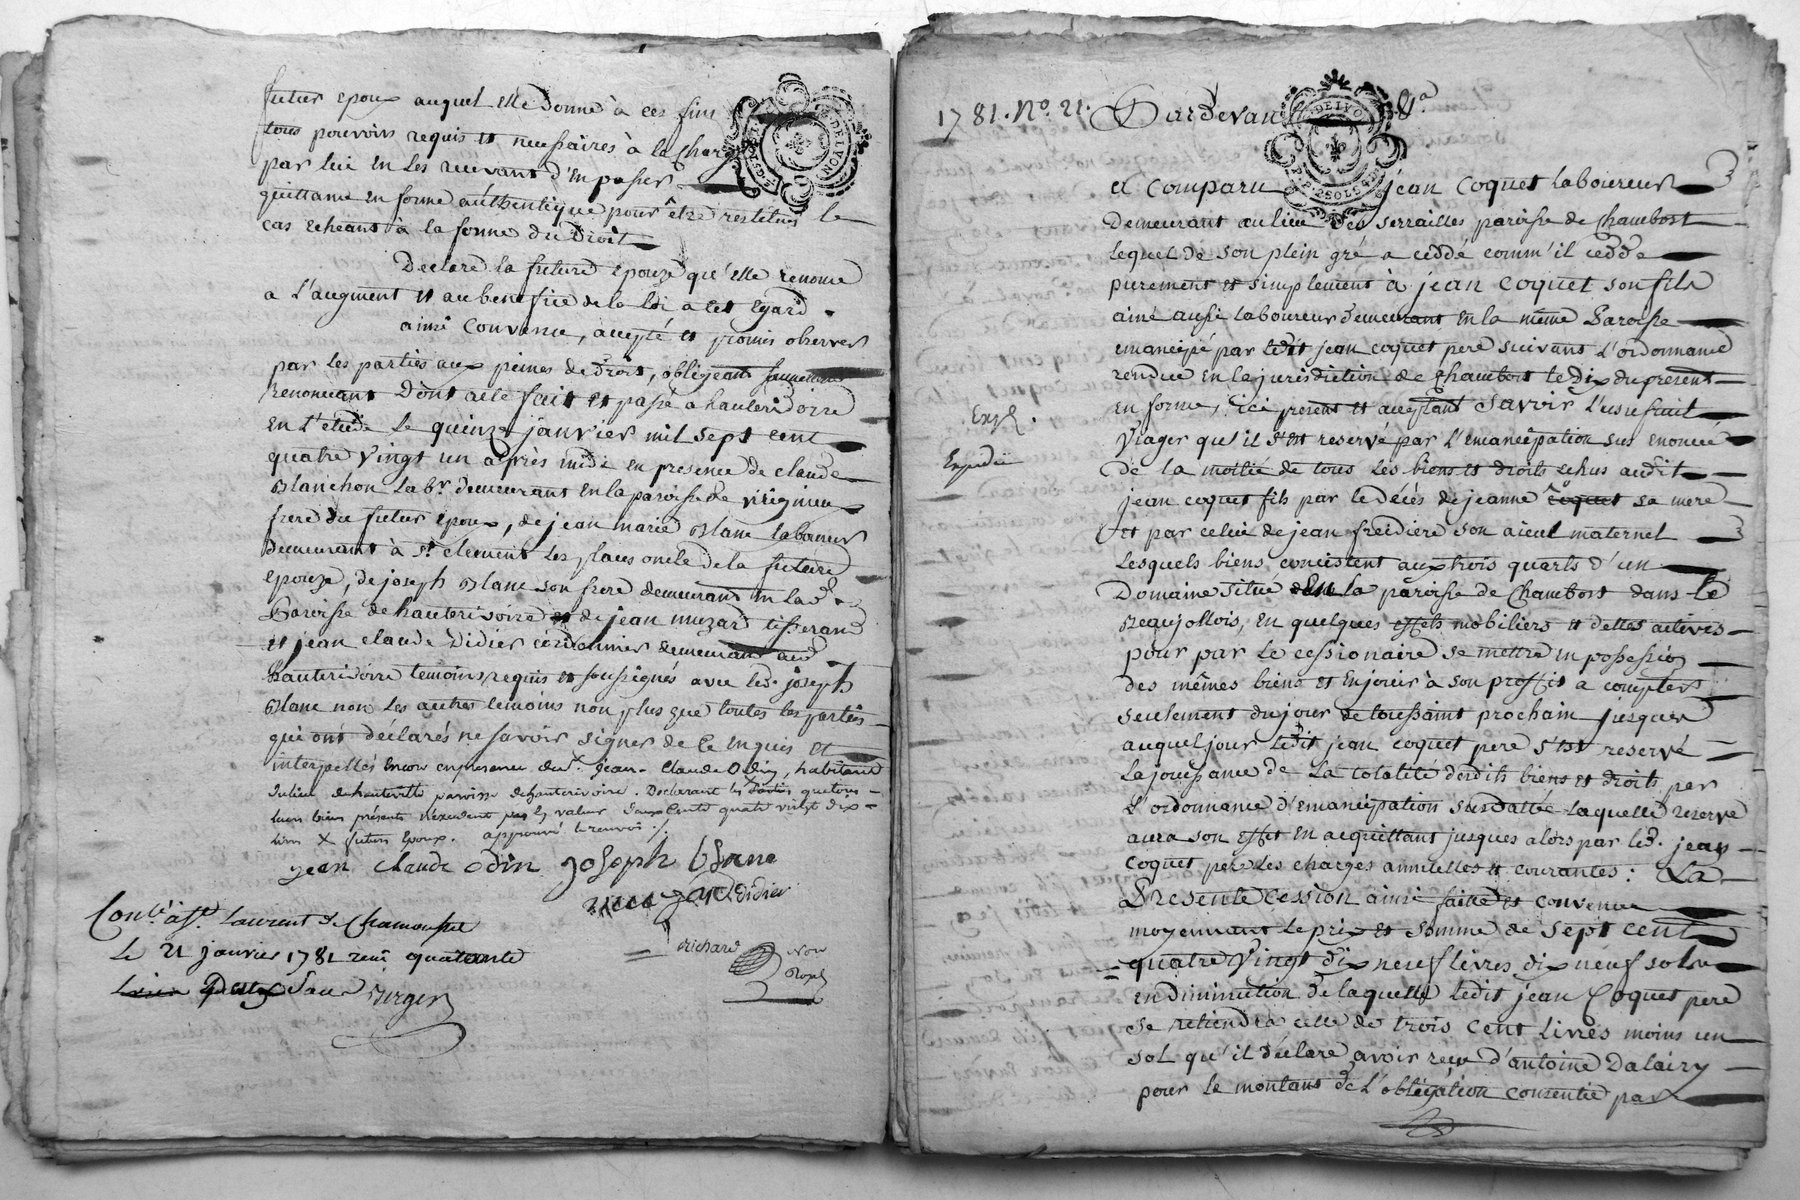 futur epoux auquel elle donne à ces fins
tous pouvoirs requis et necessaires à la charge
par lui en les recevant d'en passer
quittance en forme authentique pour être restitués le
cas echeant à la forme du Droit
Declare la future epouze qu'elle renonce
a l'augment et au benefice de la loi a cet egard.
ainsi convenu, accepté et promis observer
par les parties aux peines de droit, obligeant
Renoncant Dont acte fait et passé a hauterivoire
en l'étude le quinze janvier mil sept cent
quatre vingt un après midi en presence de claude
Blanchon labr. demeurant en la paroisse de
frere du futur epoux, de jean marie Blanc laboureur
demeurant à St. clement les places oncle de la future
epouze, de joseph Blanc son frere demeurant en lad.
Paroisse de hauterivoire et de jean muzard tisserand
et jean claude Didier cordonnier demeurant aud.
hauterivoire temoins requis et soussignés avec led. joseph
Blanc non les autres temoins non plus que toutes les parties
qui ont déclarés ne savoir signer de ce enquis et
interpellés encor en presence du Sr. jean claude Odin, habitant
du lieu de hauteville paroisse de hauterivoire. Declarant les parties que tous
leurs biens présents n'excedent pas la valeur de cents quatre vingt dix
X futur epoux. approuvé le renvoi
jean claude odin joseph blanc
muzard didier
Conlé. à St. Laurent de Chamousset
Le 21 janvier 1781 reçu quarante
richard
nore
royal
1781. No. 21. Pardevant
DE LYON
P.P. 2 SOLS 4 D.
a comparu jean coquet laboureur
demeurant au lieu des serrailles paroisse de chambost
lequel de son plein gré a ceddé comm'il cedde
purement et simplement à jean coquet son fils
ainé aussi laboureur demeurant en la même Paroisse
emancipé par ledit jean coquet pere suivant l'ordonnance
rendue en la jurisdiction de chambost le dix du present
en forme, ici present et acceptant savoir l'usufruit
Exp.
viager qu'il s'est reservé par l'emancipation sus enoncée
Expediée
de la moitié de tous les biens et droits echus audit
jean coquet fils par le décès de jeanne coquet sa mere
et par celui de jean freidiere son aieul maternel
lesquels biens consistent aux trois quarts d'un
Domaine situé en la paroisse de Chambost dans le
Beaujollois, en quelques effets mobiliers et dettes actives
pour par le cessionaire se mettre en possession
des mêmes biens et en jouir à son proffit a compter
seulement du jour de toussaint prochain jusques
auquel jour ledit jean coquet pere s'est reservé
la jouissance de la totalité desdits biens et droits par
l'ordonnance d'emancipation susdattée laquelle reserve
aura son effet en acquittant jusques alors par led. jean
coquet pere les charges annuelles et courantes: La
Presente cession ainsi faitte et convenue
moyennant le prix et somme de sept cent
quatre vingt dix neuf livres dix neuf sols
en diminution de laquelle ledit jean Coquet pere
se retiendra celle de trois cent livres moins un
sol qu'il déclare avoir reçu d'antoine Dalairy
pour le montant de l'obligation consentie par